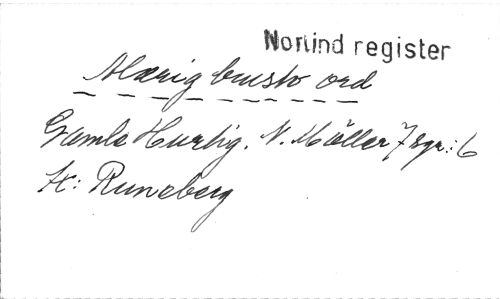 Norlind register
Aldrig brusto ord
Gamle Hurtig. N. Möller 7 sgr.: 6
tx: Runeberg